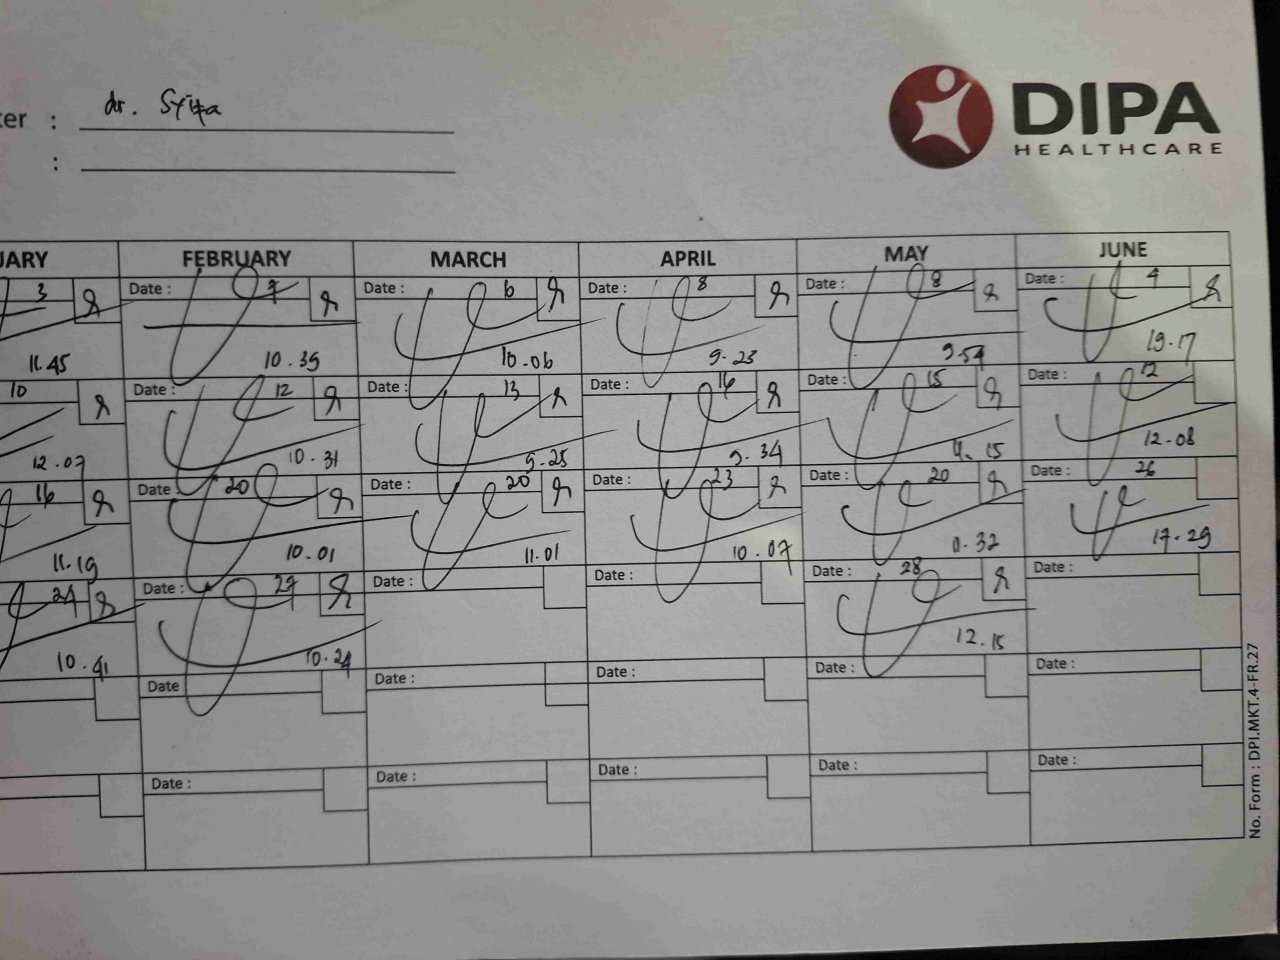 dr. Syifa
:
:
DIPA
HEALTHCARE
FEBRUARY MARCH APRIL MAY JUNE
3 Date : 7 Date : 6 Date : 8 Date : 8 Date : 4
11.45 10.39 10.06 9.23 9.54 19.17
10 Date : 12 Date : 13 Date : 16 Date : 15 Date : 12
12.07 10.31 9.25 9.34 12.08
16 Date : 20 Date : 20 Date : 23 Date : 20 Date : 26
11.19 10.01 11.01 10.07 11.32 17.29
24 Date : 27 Date : Date : Date : 28 Date :
10.41 10.24 12.15
Date Date : Date : Date : Date :
Date : Date : Date : Date : Date :
No. Form : DPI.MKT.4-FR.27